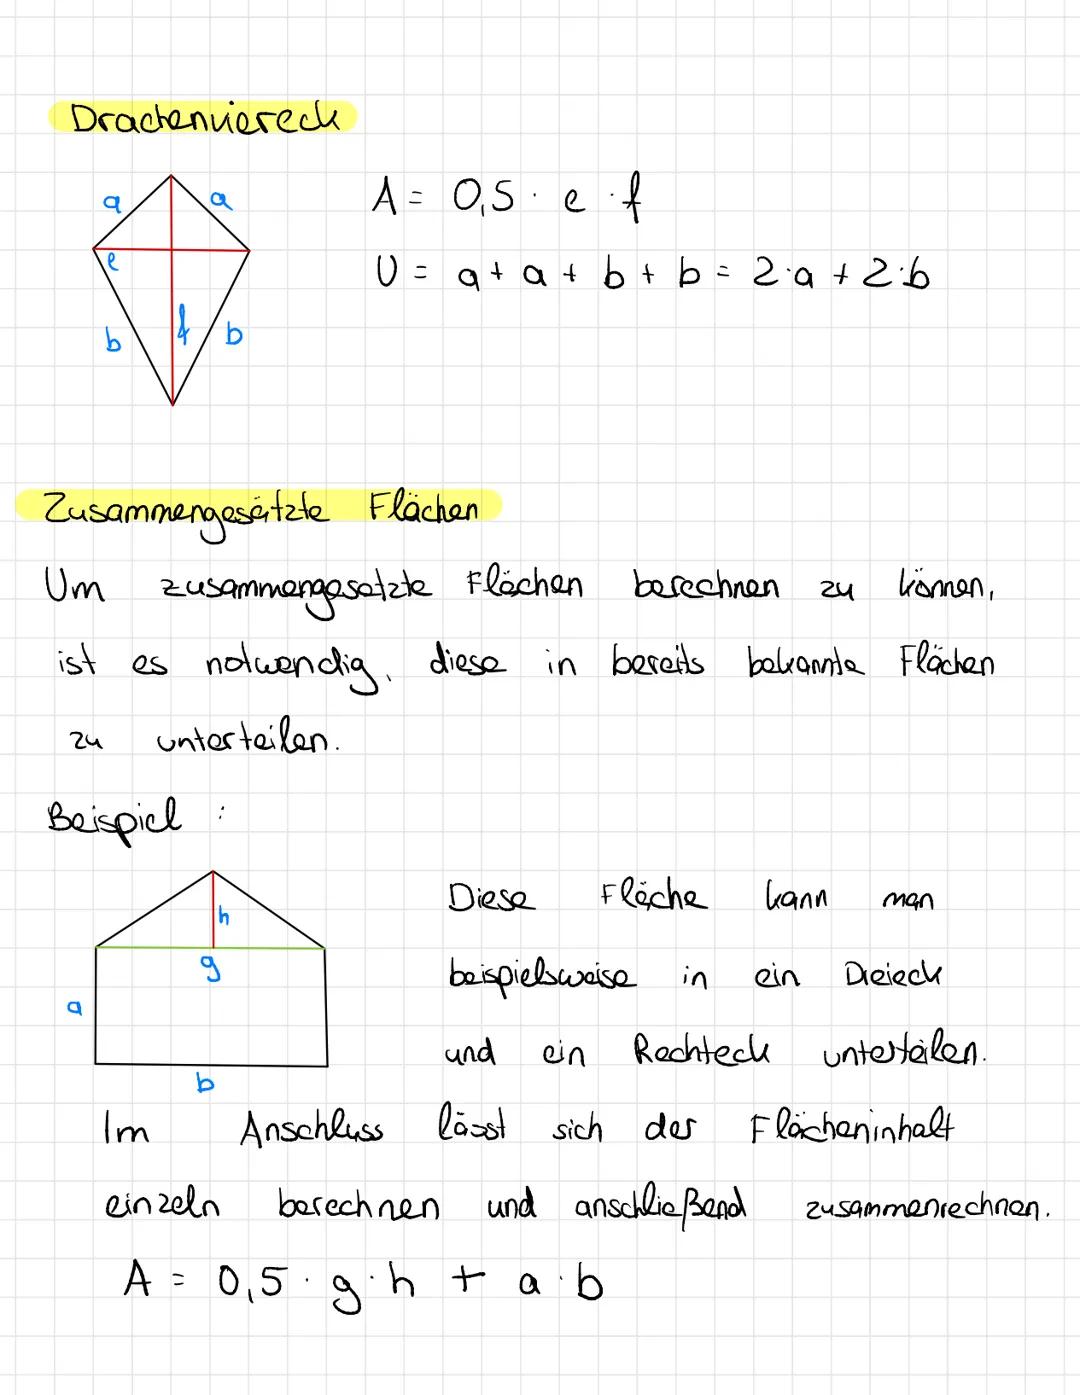 Drachenviereck
a a
A = 0,5 · e · f
e
U = a + a + b + b = 2·a + 2·b
b f b
Zusammengesätzte Flächen
Um zusammengesetzte Flächen berechnen zu können,
ist es notwendig, diese in bereits bekannte Flächen
zu unterteilen.
Beispiel :
h
g
a
b
Diese Fläche kann man
beispielsweise in ein Dreieck
und ein Rechteck unterteilen.
Im Anschluss lässt sich der Flächeninhalt
einzeln berechnen und anschließend zusammenrechnen.
A = 0,5 · g · h + a · b